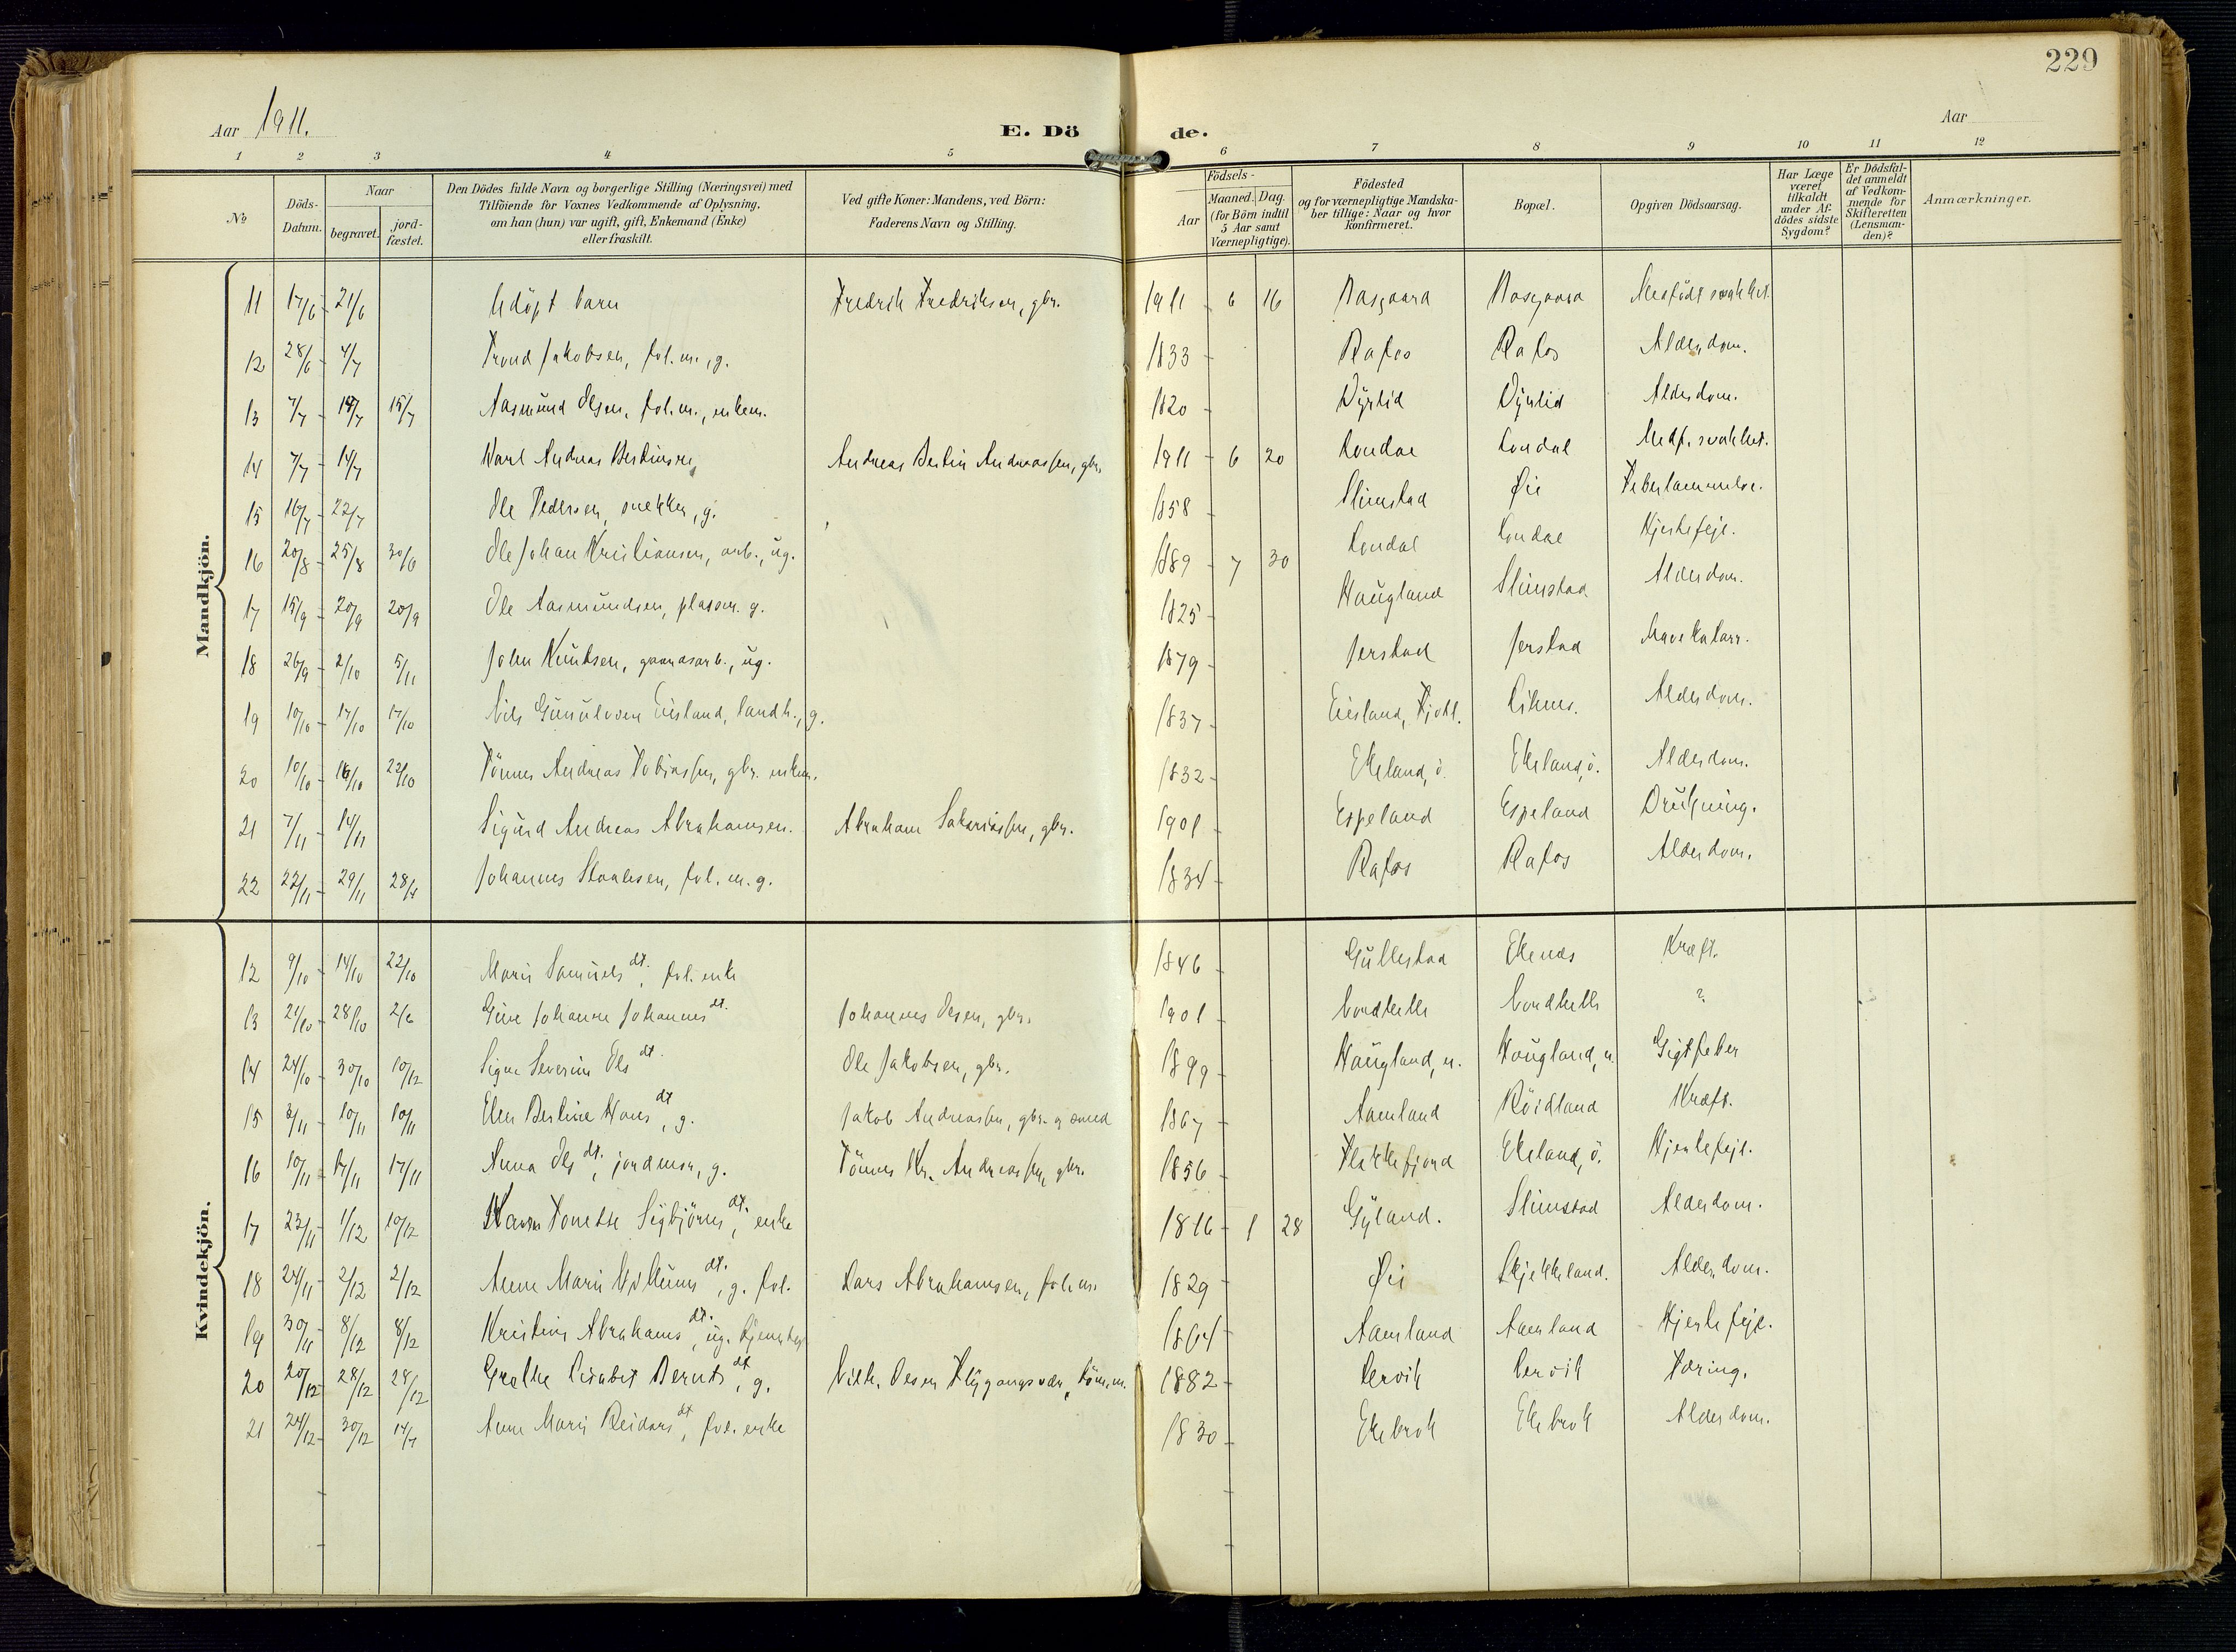 229
Aar 1911.
E. Dö de.
Aar
1 2 3 4 5 6 7 8 9 10 11 12
No
Döds-Datum.
Naar
begravet.
jord-fæstet.
Den Dödes fulde Navn og borgerlige Stilling (Næringsvei) med Tilföiende for Voxnes Vedkommende af Oplysning, om han (hun) var ugift, gift, Enkemand (Enke) eller fraskilt.
Ved gifte Koner: Mandens, ved Börn: Faderens Navn og Stilling.
Födsels-
Aar
Maaned. Dag.
(for Börn indtil 5 Aar samt Værnepligtige).
Födested og for værnepligtige Mandskaber tillige: Naar og hvor konfirmeret.
Bopæl.
Opgiven Dödsaarsag.
Har Læge været tilkaldt under Afdödes sidste Sygdom?
Er Dödsfaldet anmeldt af Vedkommende for Skifteretten (Lensmanden)?
Anmærkninger.
Mandkjön.
11 17/6 21/6 Udöpt barn Fredrik Fredriksen, gbr. 1911 6 16 Aasgaard Aasgaard Medfödt svakhet.
12 28/6 4/7 Trond Jakobsen, fol.m., g. 1833 Rafos Rafos Alderdom.
13 7/7 14/7 15/7 Aasmund Olsen, fol.m., enkem. 1820 Dyrlid Dyrlid Alderdom.
14 7/7 14/7 Karl Andreas Bertinsen, Andreas Bertin Andreassen, gbr. 1911 6 20 Londal Londal Medf. svakhet.
15 16/7 22/7 Ole Pedersen, snekker, g. 1858 Slimstad Öie
16 20/8 25/8 Ole Johan Kristiansen, arb., ug. 1889 7 30 Londal Londal Hjertefejl.
17 15/9 20/9 20/9 Ole Aasmundsen, plassm. g. 1825 Haugland Slimstad Alderdom.
18 26/9 2/10 5/11 John Knutsen, gaardsarb., ug. 1879 Jerstad Jerstad Mavekatarr.
19 10/10 17/10 17/10 Nils Gunulvsen Eiesland, landh., g. 1837 Eiesland, Fjotl. Alderdom.
20 10/10 16/10 22/10 Tönnes Andreas Tobiassen, gbr. enkem. 1832 Ekeland, ö. Ekeland, ö. Alderdom.
21 7/11 14/11 Sigurd Andreas Abrahamsen. Abraham Sakariassen, gbr. 1901 Espeland Espeland Drukning.
22 22/11 29/11 Johannes Staalesen, fol.m. g. 1834 Rafos Rafos Alderdom.
Kvindekjön.
12 9/10 14/10 22/10 Marie Samuels dt. fol. enke 1846 Gullestad Ekenæs Kræft.
13 21/10 28/10 2/6 Gine Johanne Johannes dt. Johannes Olsen, gbr. 1901 ?
14 24/10 30/10 10/12 Signe Severine Ols dt. Ole Jakobsen, gbr. 1899 Haugland, n. Haugland, n. Gigtfeber
15 3/11 10/11 10/11 Elen Bertine Hans dt, g. Jakob Andreassen, gbr. og smed 1867 Aamland Röidland Kræft.
16 10/11 17/11 17/11 Anna Ols dt., jordmor, g. Tönnes Kr. Andreassen, gbr. 1856 Flekkefjord Ekeland, ö. Hjertefejl.
17 23/11 1/12 10/12 Karen Tonette Sigbjörns dt., enke 1816 1 28 Gyland. Slimstad Alderdom.
18 24/11 2/12 2/12 Anne Marie Villums dt., g. fol. Lars Abrahamsen, fol.m. 1829 Öie Skjekkeland. Alderdom.
19 30/11 8/12 8/12 Kristine Abrahams dt., ug. 1864 Aamland Aamland Hjertefejl.
20 20/12 28/12 28/12 Grethe Lisabet Bernts dt, g. 1882 Lervik Lervik Tæring.
21 24/12 30/12 14/7 Anne Marie Reidars dt, fol. enke 1830 Ekebrok Ekebrok Alderdom.